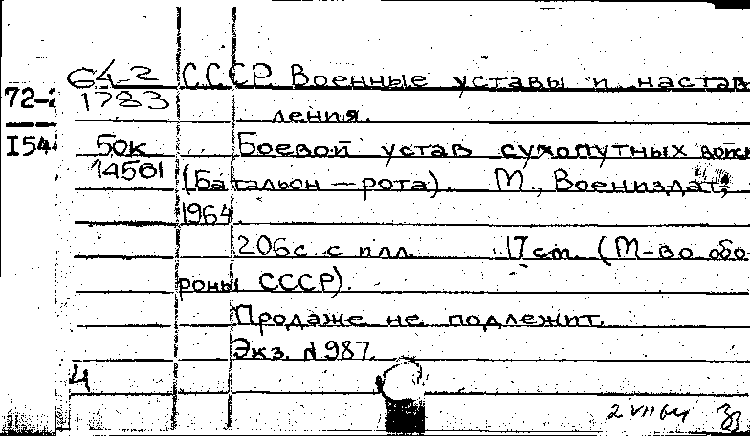 64-2 С.С.С.Р. Военные уставы и настав
1783 ления.
72-
I54
50к Боевой устав сухопутных войск
14561 (Батальон — рота). М., Воениздат,
1964.
206с. с илл. 17см. (М-во обо
роны СССР).
Продаже не подлежит.
Экз. N987.
4
2 VII 64